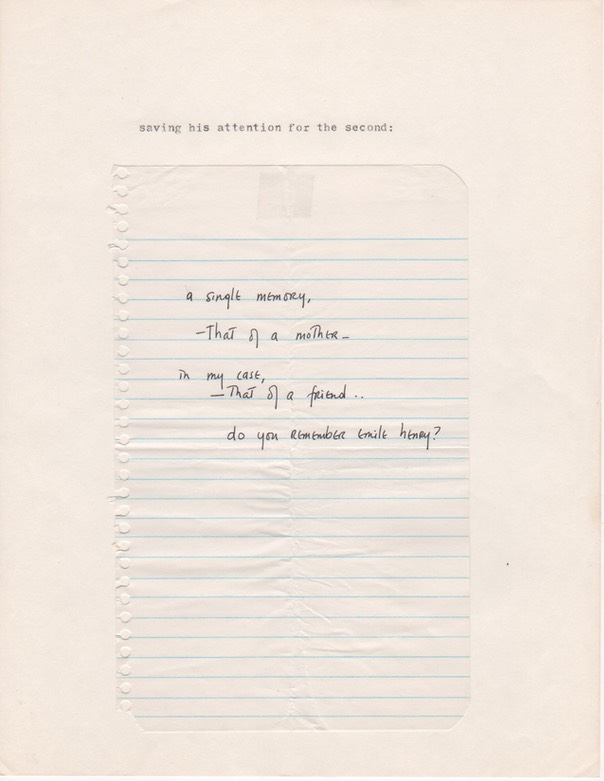 saving his attention for the second:
a single memory,
—That of a mother—
in my case,
—That of a friend..
do you remember emile henry?